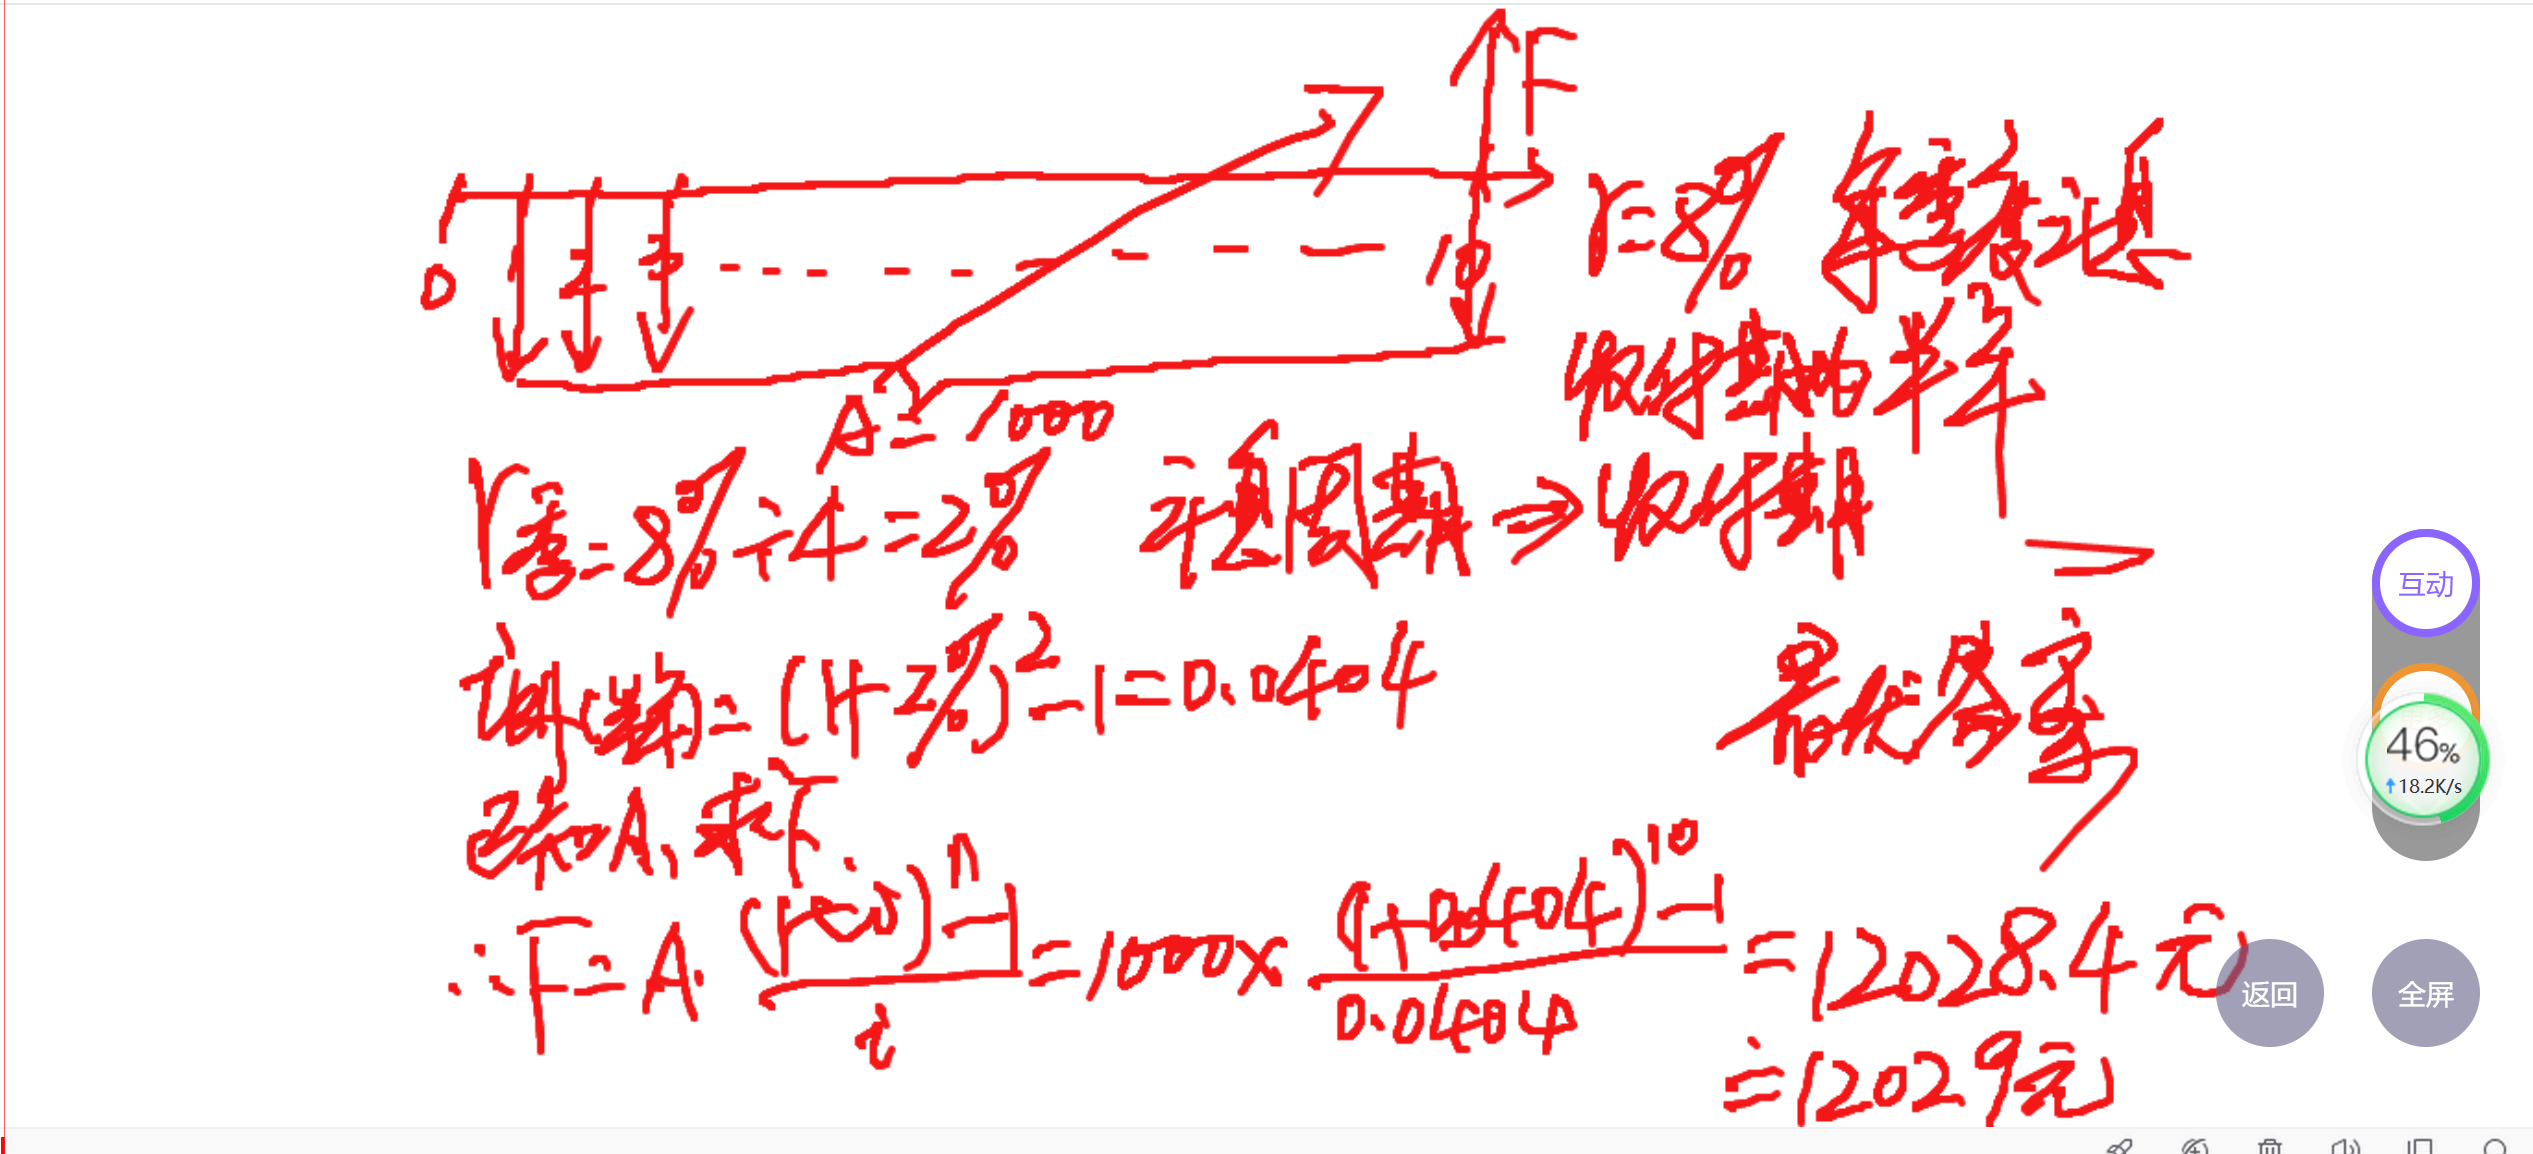 F
r=8% 每季复计息
0 1 2 3 10
收付期为半年
A=1000
r季=8%÷4=2% 计息周期→收付期
i半(半年)=(1+2%)²-1=0.0404
最优答案
已知A,求F
∴F=A·((1+i)ⁿ-1)/i=1000×((1+0.0404)¹⁰-1)/0.0404=12028.4元
≐12029元
互动
46%
↑18.2K/s
返回
全屏